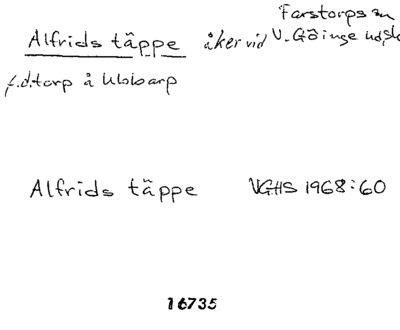 Farstorps sn
Alfrids täppe åker vid V. Göinge hd, Sk
f.d. torp å Ubbarp
Alfrids täppe VGHS 1968:60
16735